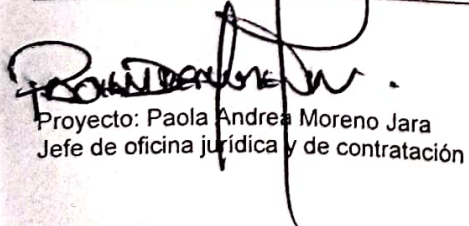 Proyecto: Paola Andrea Moreno Jara
Jefe de oficina jurídica y de contratación